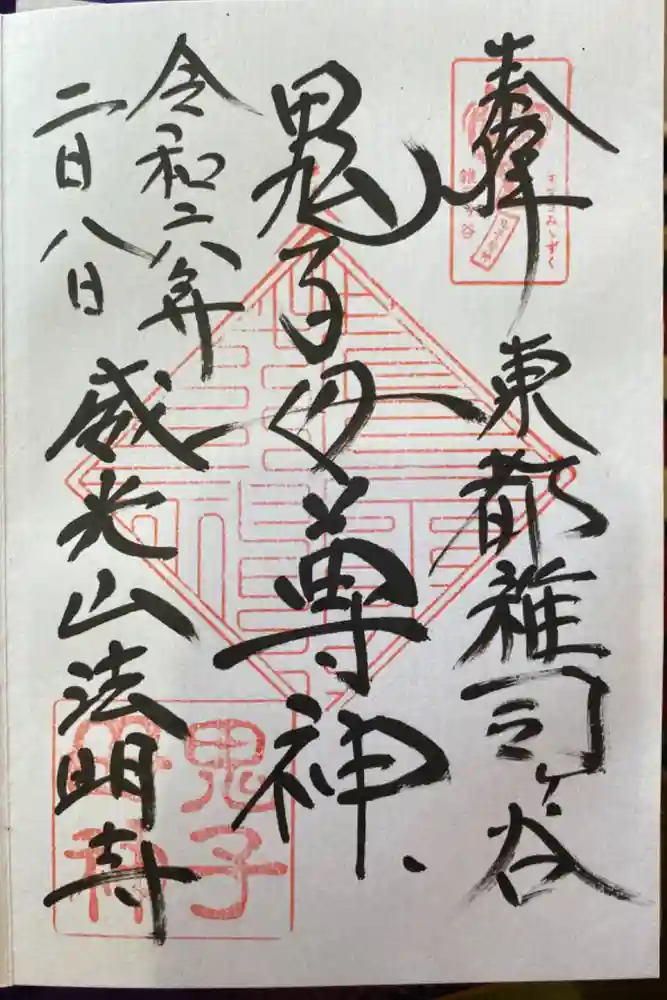 奉拝
東都雑司ヶ谷
鬼子母尊神
令和六年
二月八日
威光山法明寺
すすきみゝずく
雑司ヶ谷
鬼子
母神